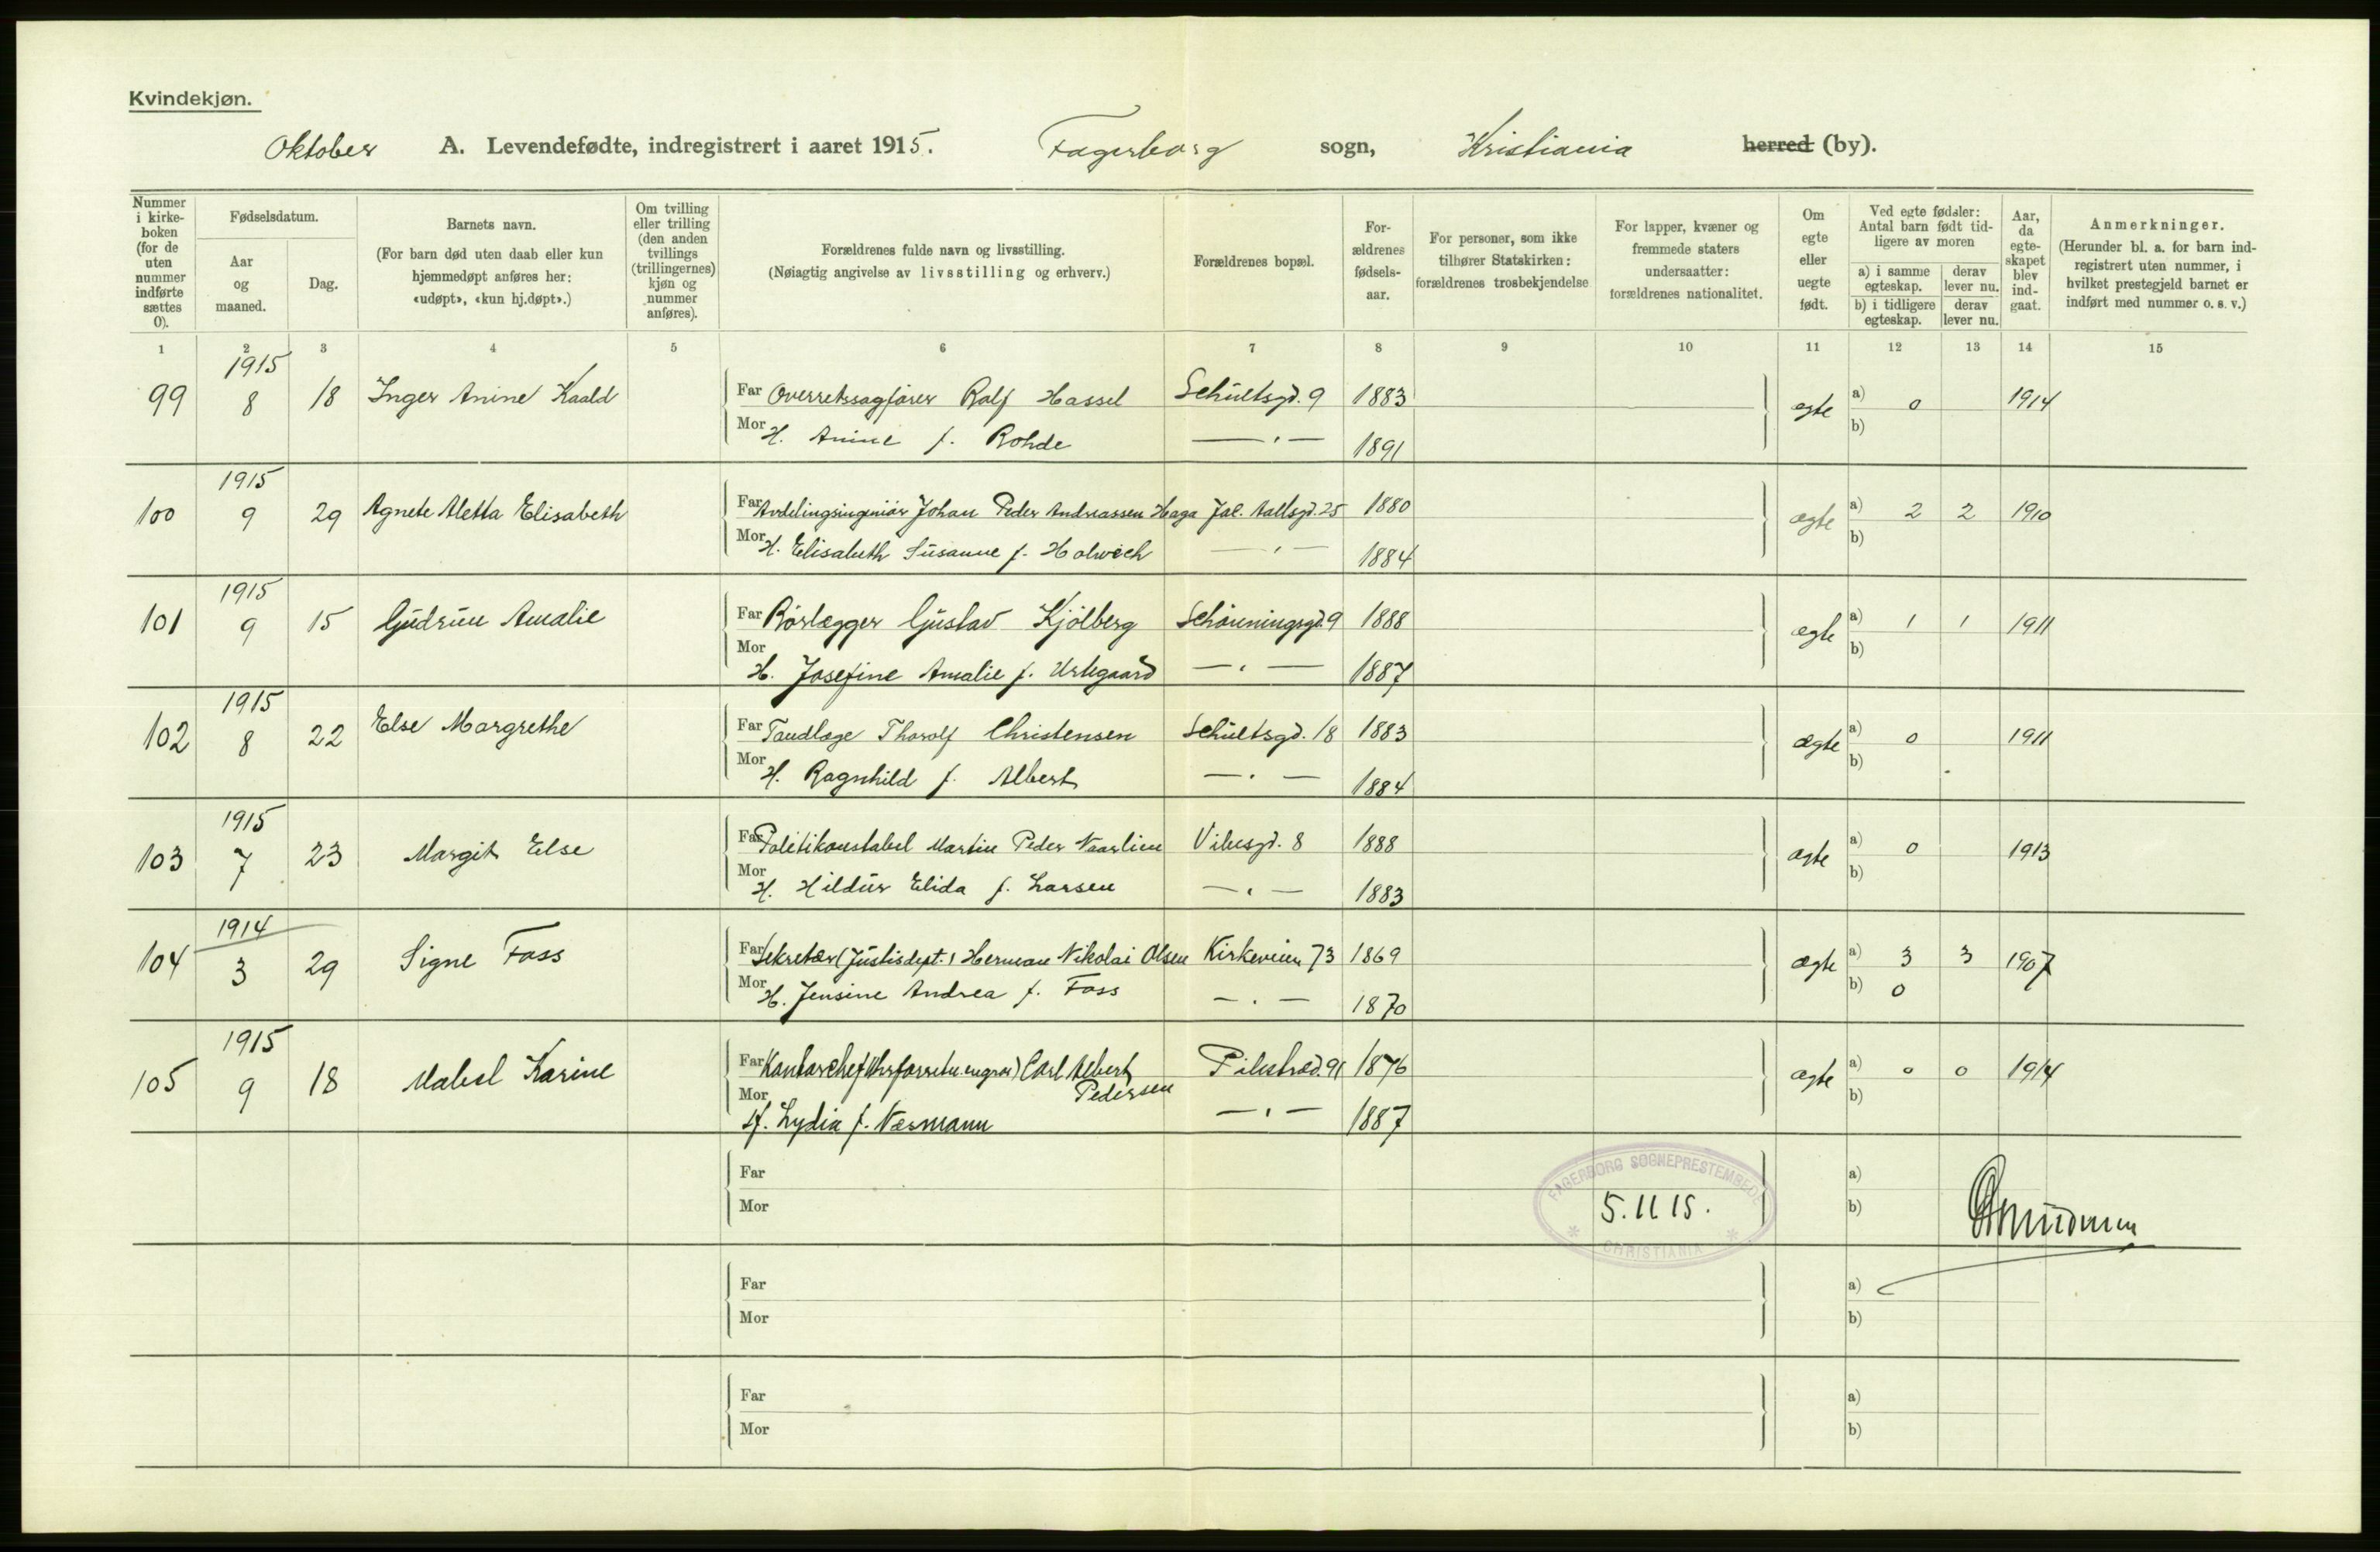 Kvindekjøn.
Oktober A. Levendefødte, indregistrert i aaret 1915. Fagerborg sogn, Kristiania herred (by).
Nummer i kirkeboken (for de uten nummer indførte sættes 0).
Fødselsdatum.
Aar og maaned.
Dag.
Barnets navn.
(For barn død uten daab eller kun hjemmedøpt anføres her: «udøpt», «kun hj.døpt».)
Om tvilling eller trilling (den anden tvillings (trillingernes) kjøn og nummer anføres).
Forældrenes fulde navn og livsstilling.
(Nøiagtig angivelse av livsstilling og erhverv.)
Forældrenes bopæl.
Forældrenes fødselsaar.
For personer, som ikke tilhører Statskirken: forældrenes trosbekjendelse
For lapper, kvæner og fremmede staters undersaatter: forældrenes nationalitet.
Om egte eller uegte født.
Ved egte fødsler: Antal barn født tidligere av moren
a) i samme egteskap. derav lever nu.
b) i tidligere egteskap. derav lever nu.
Aar, da egteskapet blev indgaat.
Anmerkninger.
(Herunder bl. a. for barn indregistrert uten nummer, i hvilket prestegjeld barnet er indført med nummer o. s. v.)
1 2 3 4 5 6 7 8 9 10 11 12 13 14 15
1915
99 8 18 Inger Anine Kaald Far Overretssagfører Rolf Hassel Schultsgd. 9 1883 egte a) 0 1914
Mor H. Anine f. Rohde — " — 1891 b)
1915
100 9 29 Agnete Aletta Elisabeth Far Avdelingsingeniør Johan Peder Andreassen Haga Jac. Aallsgd. 25 1880 ægte a) 2 2 1910
Mor H. Elisabeth Susanne f. Holweck — " — 1884 b)
1915
101 9 15 Gudrun Amalie Far Rørlægger Gustav Kjölberg Schønningsgd. 9 1888 ægte a) 1 1 1911
Mor H. Josefine Amalie f. Urtegaard — " — 1887 b)
1915
102 8 22 Else Margrethe Far Tandlæge Thorolf Christensen Schultsgd. 18 1883 ægte a) 0 1911
Mor H. Ragnhild f. Albert — " — 1884 b)
1915
103 7 23 Margit Else Far Politikonstabel Martin Peder Naarlien Vibesgd. 8 1888 ægte a) 0 1913
Mor H. Hildur Elida f. Larsen — " — 1883 b)
1914
104 3 29 Signe Foss Far Sekretær (Justisdept.) Herman Nikolai Olsen Kirkeveien 73 1869 ægte a) 3 3 1907
Mor H. Jensine Andrea f. Foss — " — 1870 b) 0
1915
105 9 18 Mabel Karine Far Kontorchef Carl Albert Pedersen Pilestræd. 91 1876 ægte a) 0 0 1914
Mor H. Lydia f. Næsmann — " — 1887 b)
Far a)
Mor b)
FAGERBORG SOGNEPRESTEMBEDE
5.11 15.
CHRISTIANIA
Far a)
Mor b)
Far a)
Mor b)